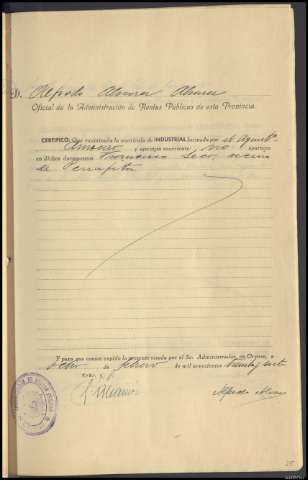 D. Alfredo Alvarez Alvarez
Oficial de la Administración de Rentas Públicas de esta Provincia.
CERTIFICO: Que examinada la matrícula de INDUSTRIAL formada por el Ayunt.º
y ejercicio corriente, no aparece
en dicho documento Francisco Seco, vecino
de
Y para que conste expido la presente visada por el Sr. Administrador, en Orense, a
ocho de febrero de mil novecientos
Alfredo Alvarez